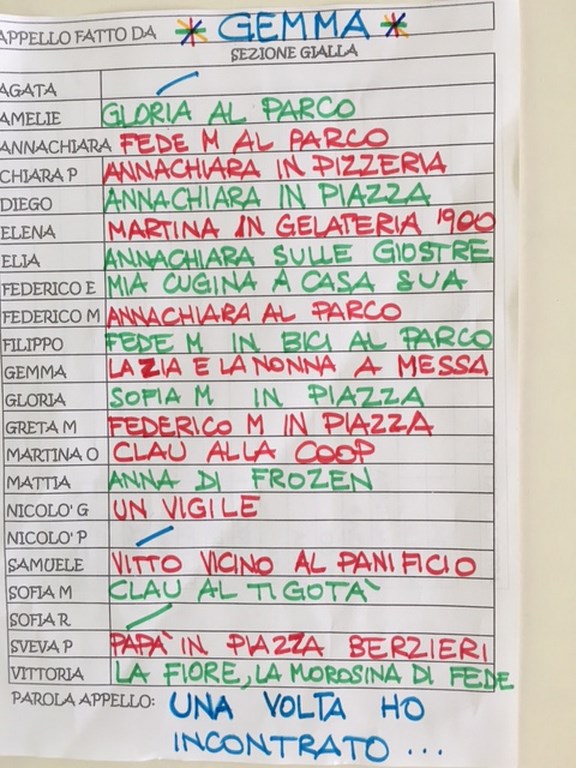 APPELLO FATTO DA GEMMA
SEZIONE GIALLA
AGATA
AMELIE GLORIA AL PARCO
ANNACHIARA FEDE M AL PARCO
CHIARA P ANNACHIARA IN PIZZERIA
DIEGO ANNACHIARA IN PIAZZA
ELENA MARTINA IN GELATERIA '900
ELIA ANNACHIARA SULLE GIOSTRE
FEDERICO E MIA CUGINA A CASA SUA
FEDERICO M ANNACHIARA AL PARCO
FILIPPO FEDE M IN BICI AL PARCO
GEMMA LA ZIA E LA NONNA A MESSA
GLORIA SOFIA M IN PIAZZA
GRETA M FEDERICO M IN PIAZZA
MARTINA O CLAU ALLA COOP
MATTIA ANNA DI FROZEN
NICOLO' G UN VIGILE
NICOLO' P
SAMUELE VITTO VICINO AL PANIFICIO
SOFIA M CLAU AL TIGOTA'
SOFIA R
SVEVA P PAPA' IN PIAZZA BERZIERI
VITTORIA LA FIORE, LA MOROSINA DI FEDE
PAROLA APPELLO: UNA VOLTA HO
INCONTRATO ...